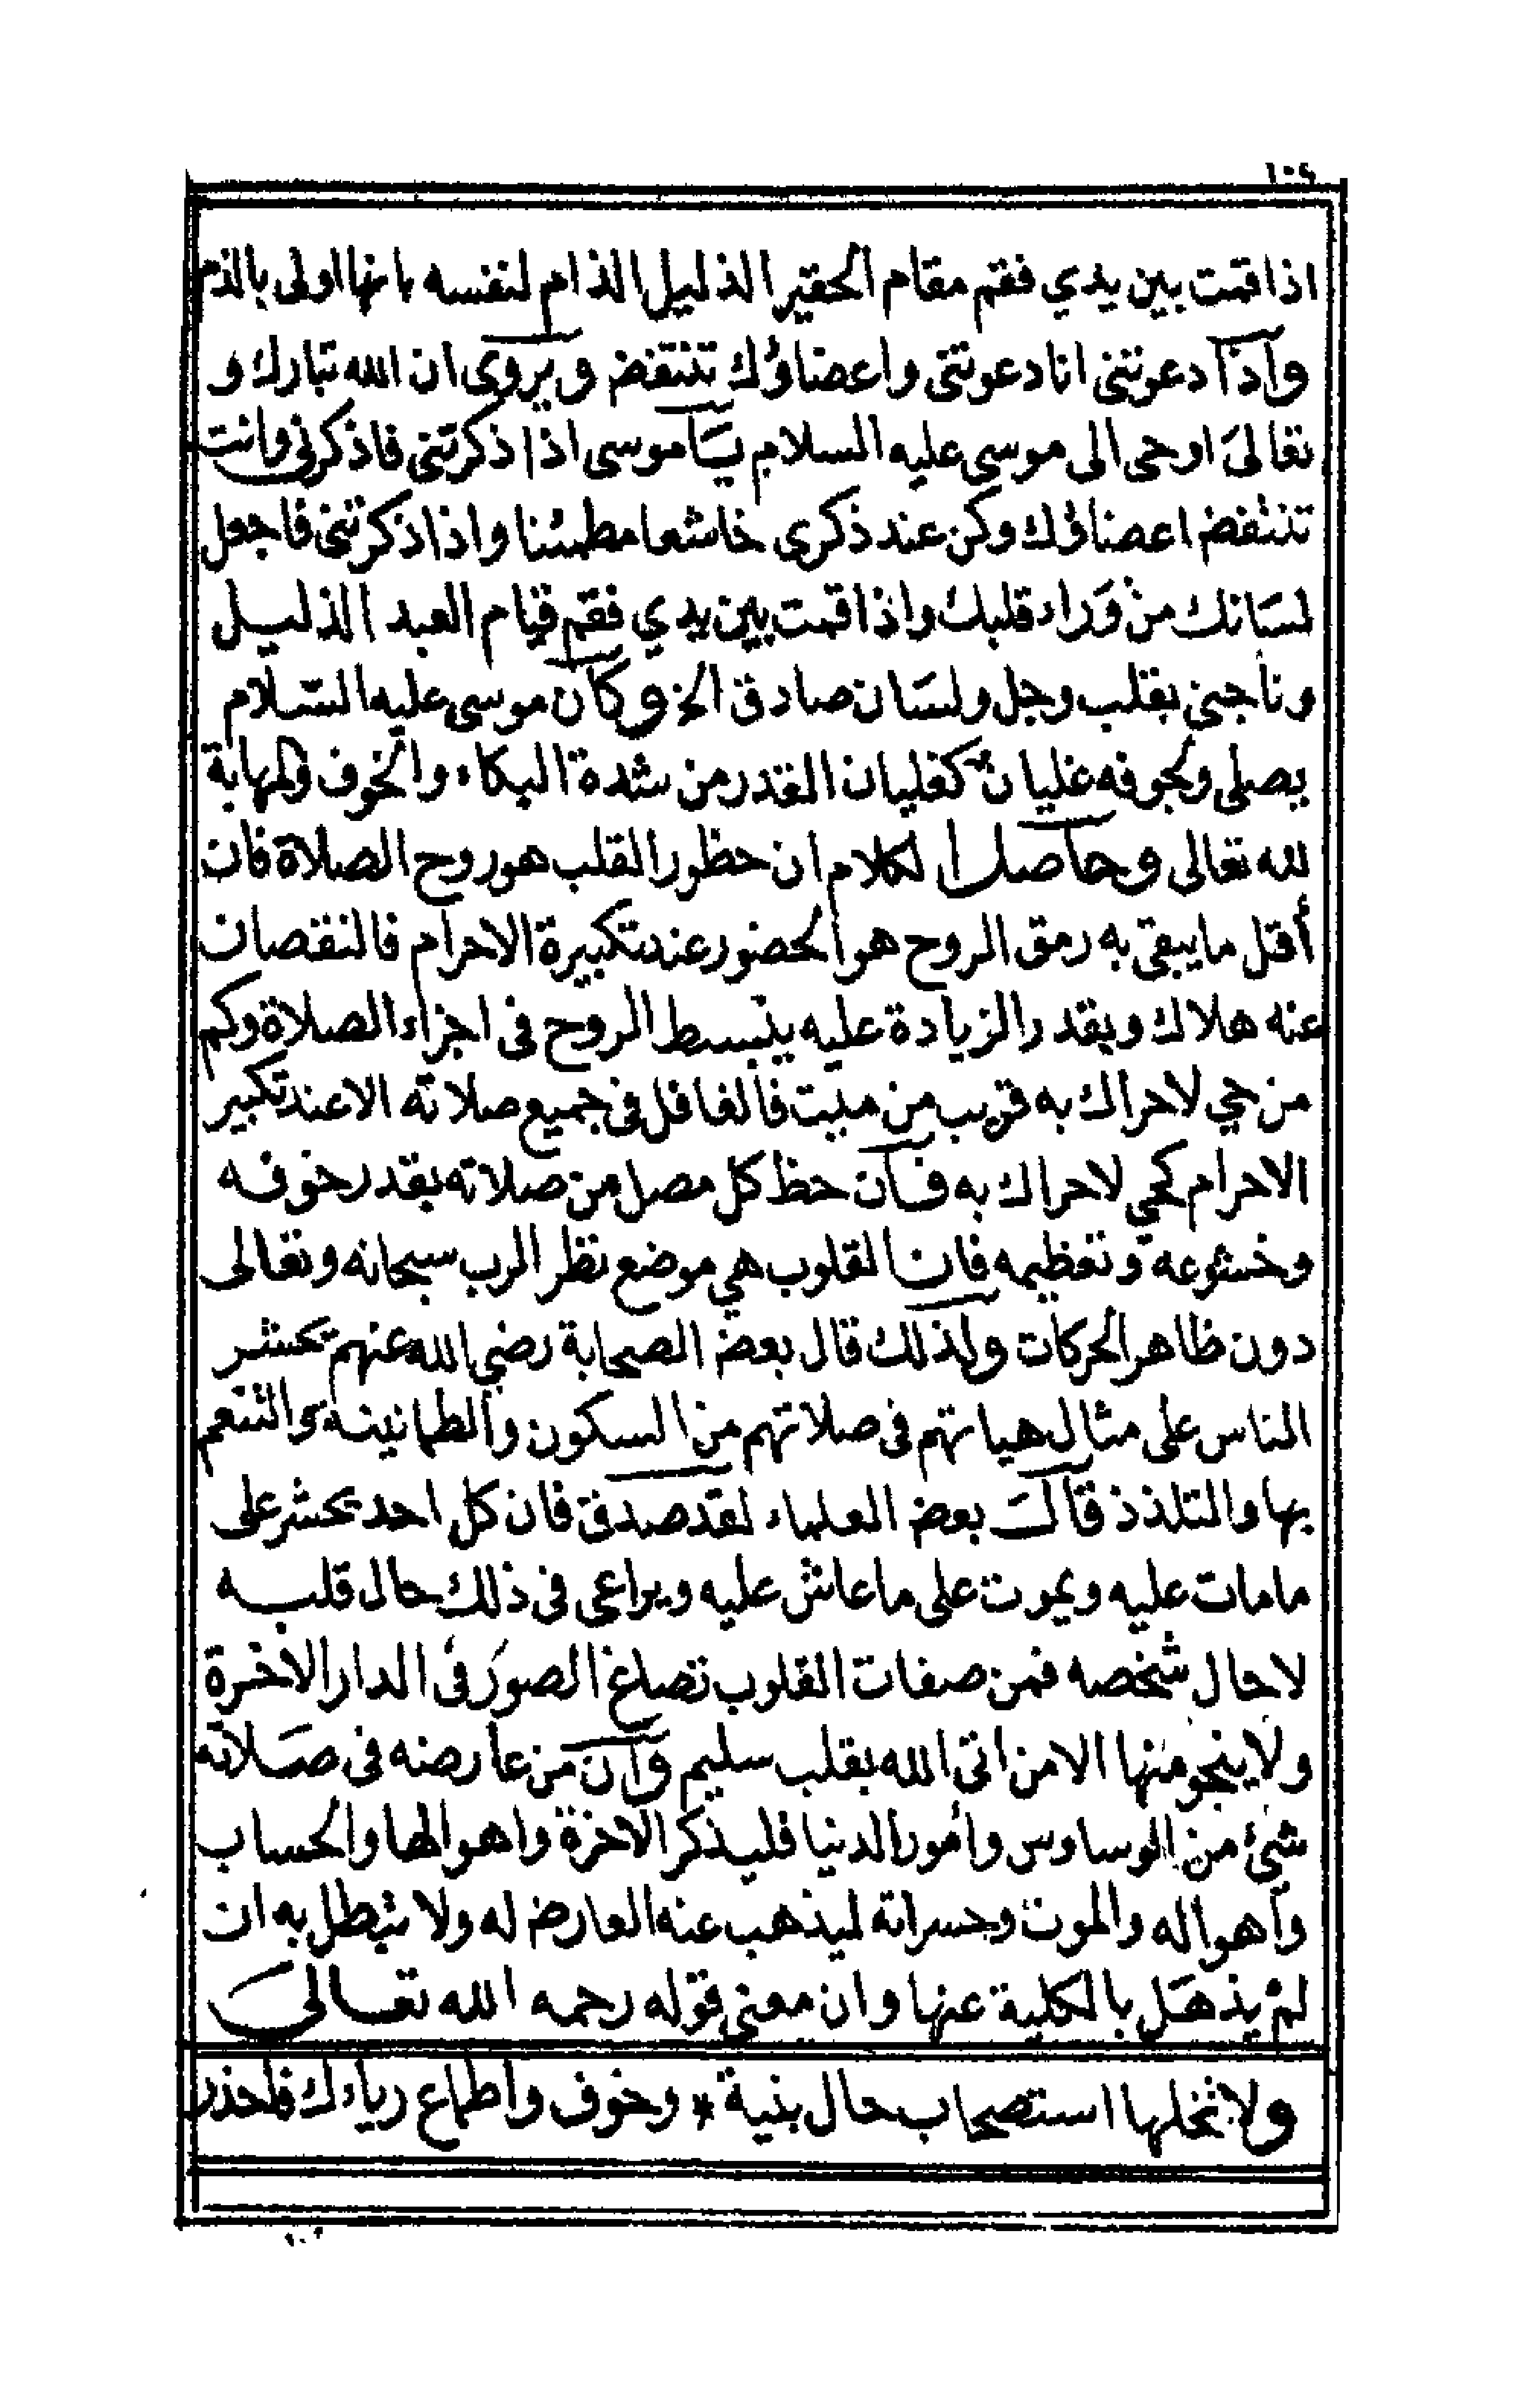 ١٠٤
اذا قمت بين يدي فقم مقام الحقير الذليل الذام لنفسه بانها اولى بالذم
وآذا دعوتنى انا دعوتنى واعضاؤك تنتفض ويروى ان الله تبارك و
تعالىَ اوحى الى موسى عليه السلام يَآموسى اذا ذكرتنى فاذكرني وانت
تنتفض اعضاؤك وكن عند ذكرى خاشعا مطمئنا واذا ذكرتنى فاجعل
لسَانك من وَراء قلبك واذا قمت بين يدي فقم قيام العبد الذليل
وناجنى بقلب وجل ولسَان صادق الخ وكآن موسى عليه السّلام
يصلى ولجوفه غليان كغليان القدر من شدة البكاء والخوف والمهابة
لله تعالى وحآصل الكلام ان حظور القلب هو روح الصلاة فان
أقل ما يبقى به رمق الروح هو الحضور عند تكبيرة الاحرام فالنقصان
عنه هلاك وبقدر الزيادة عليه ينبسط الروح فى اجزاء الصلاة وكم
من حي لاحراك به قريب من ميت فالغافل فى جميع صلاته الا عند تكبير
الاحرام كحي لاحراك به فآن حظ كل مصل من صلاته بقدر خوفه
وخشوعه وتعظيمه فان القلوب هي موضع نظر الرب سبحانه وتعالى
دون ظاهر الحركات ولذلك قال بعض الصحابة رضي الله عنهم تحشر
الناس على مثال هياتهم فى صلاتهم من السكون والطمانينة والتنعم
بها والتلذذ قآلَ بعض العلماء لقد صدق فان كل احد يحشر على
مامات عليه ويموت على ما عاش عليه ويراعى فى ذلك حال قلبه
لا حال شخصه فمن صفات القلوب تصاغ الصوَر فى الدار الاخرة
ولا ينجو منها الا من اتى الله بقلب سليم وآن من عارضه فى صَلاته
شئ من الوساوس وأمور الدنيا فليذكر الاخرة واهوالها والحساب
وأهواله والموت وحسراته ليذهب عنه العارض له ولا تبطل به ان
لمْ يذهَل بالكلية عنها وان معنى قوله رحمه الله تعالىَ
ولا تخلها استصحاب حال بنية * وخوف واطماع رياءك فاحذر